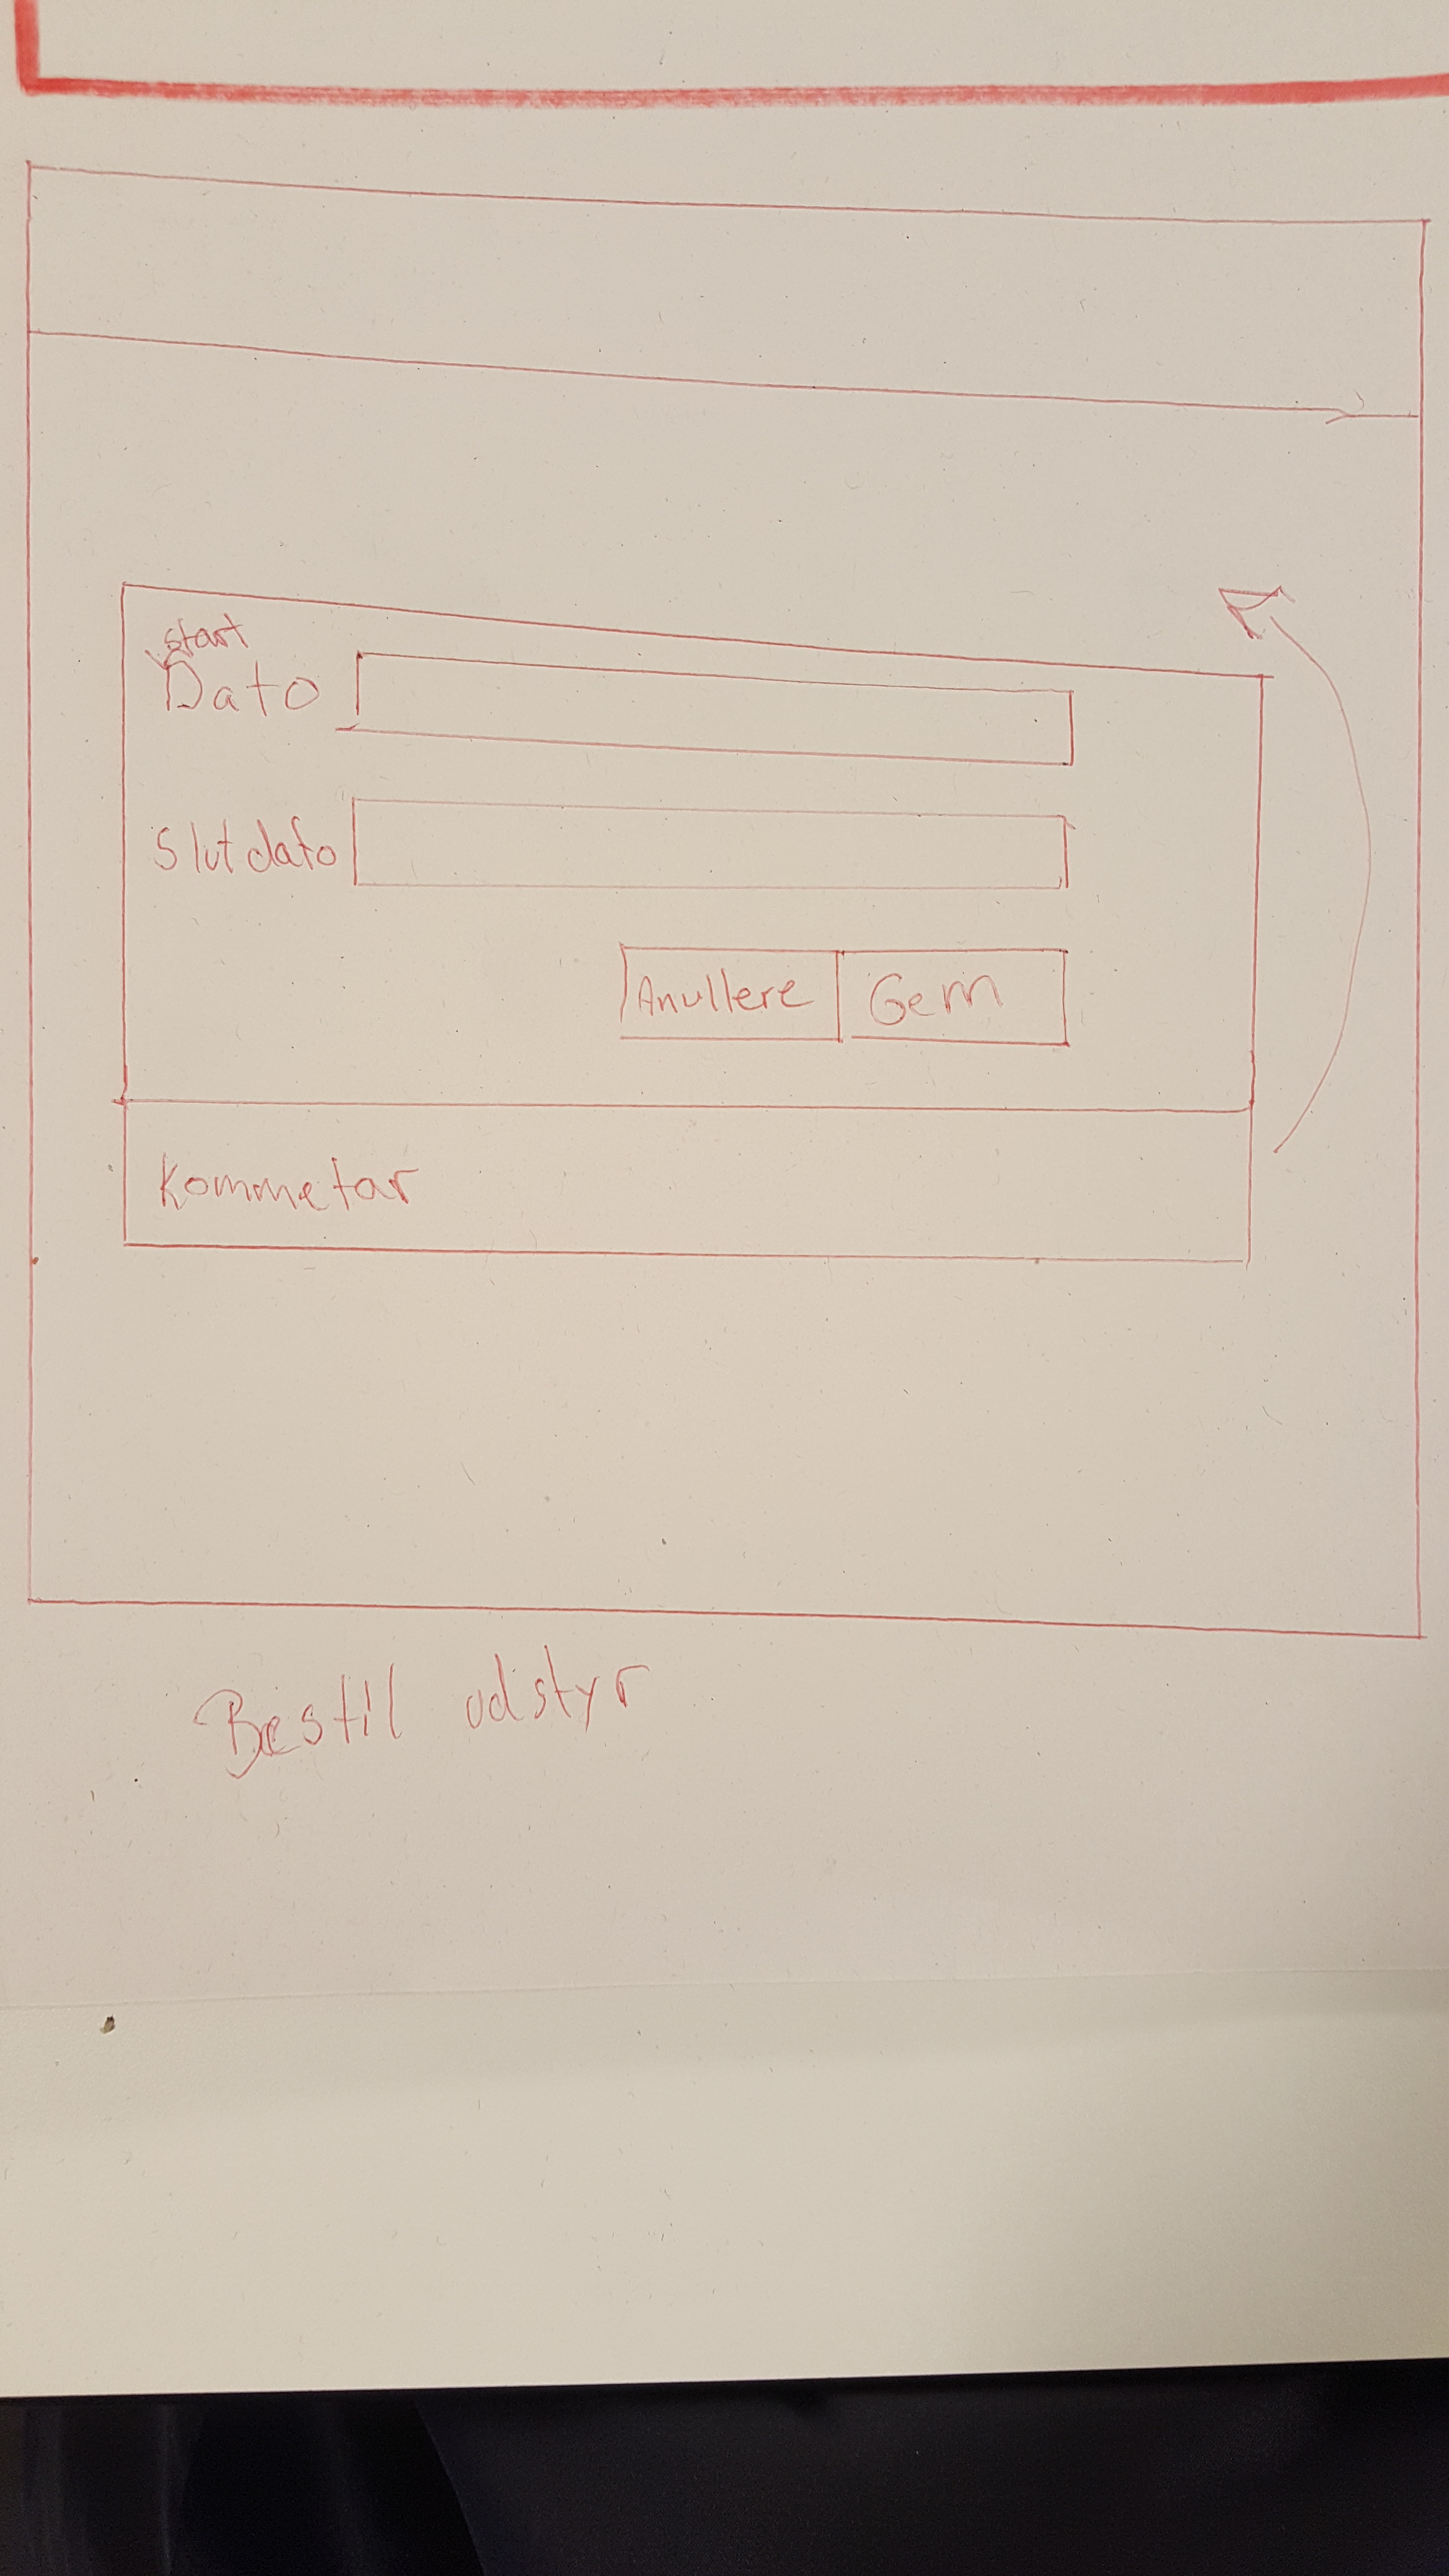 start
Dato
Slutdato
Anullere Gem
Kommetar
Bestil udstyr